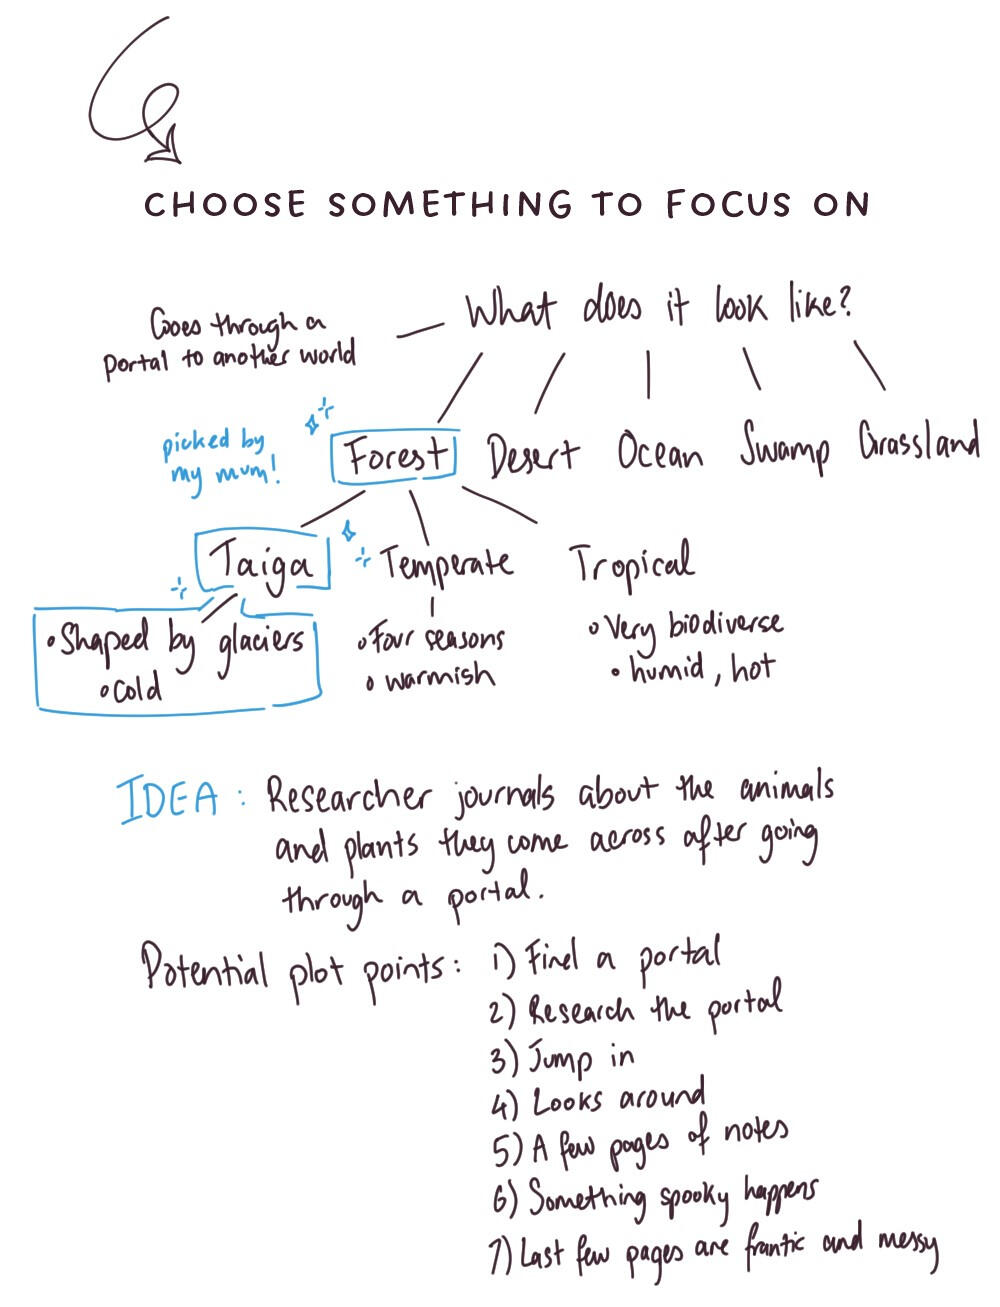 CHOOSE SOMETHING TO FOCUS ON
What does it look like?
Goes through a
portal to another world
picked by
my mum!
Forest Desert Ocean Swamp Grassland
Taiga Temperate Tropical
• Shaped by glaciers
• Cold
• Four seasons
• warmish
• Very biodiverse
• humid, hot
IDEA: Researcher journals about the animals
and plants they come across after going
through a portal.
Potential plot points: 1) Find a portal
2) Research the portal
3) Jump in
4) Looks around
5) A few pages of notes
6) Something spooky happens
7) Last few pages are frantic and messy